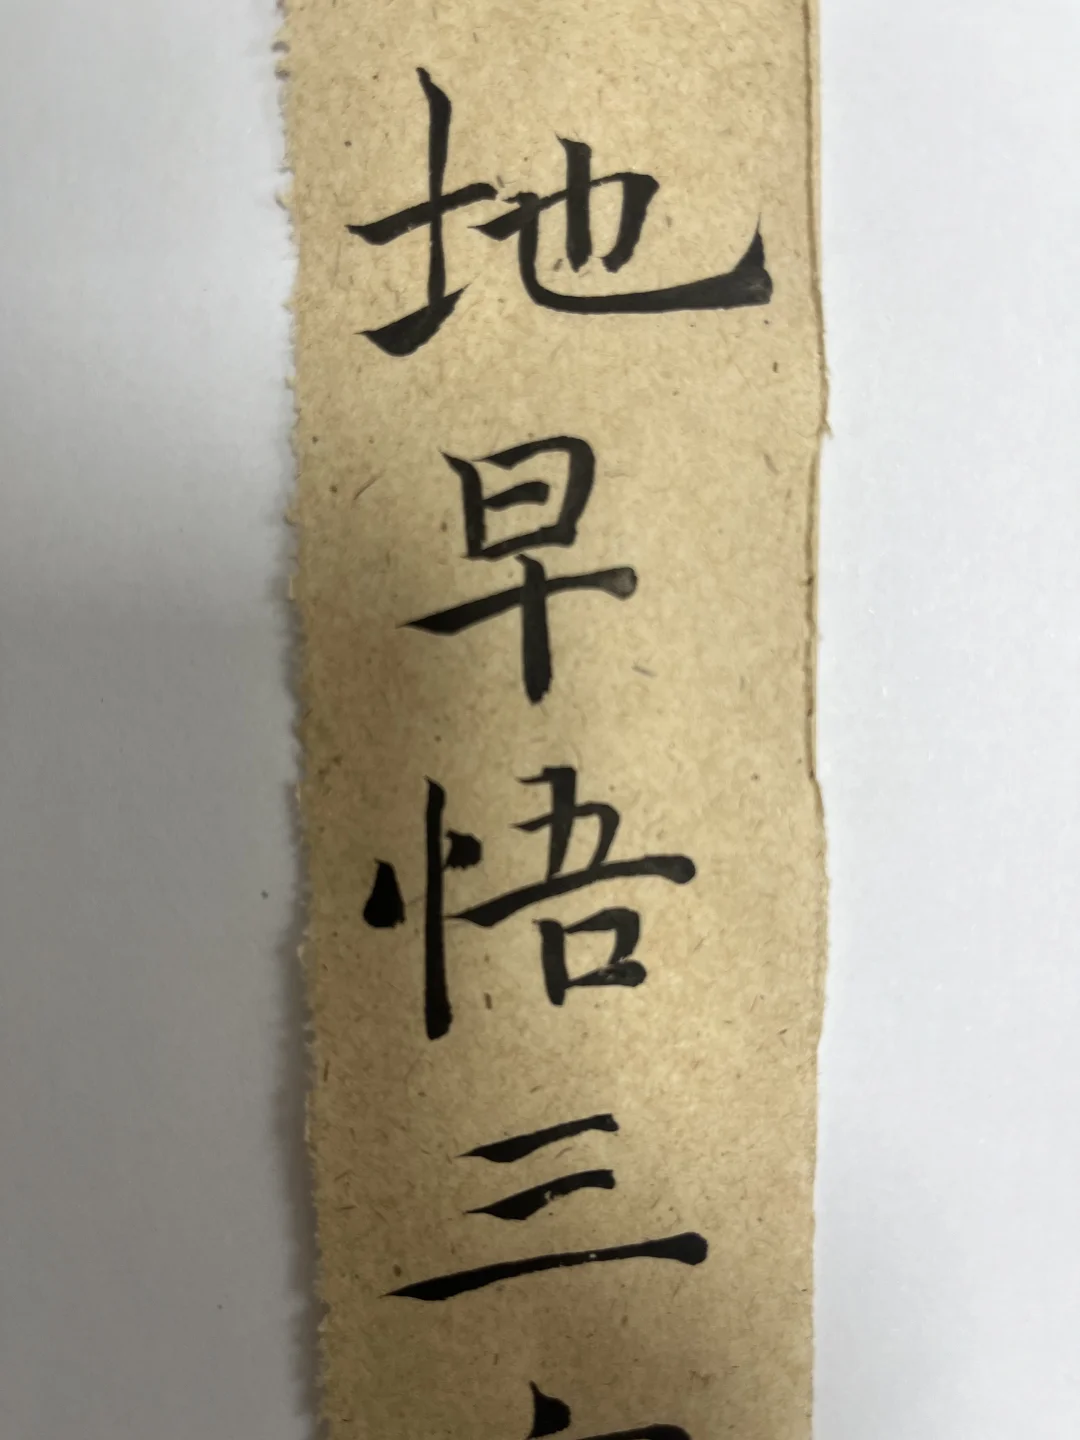 地早悟三